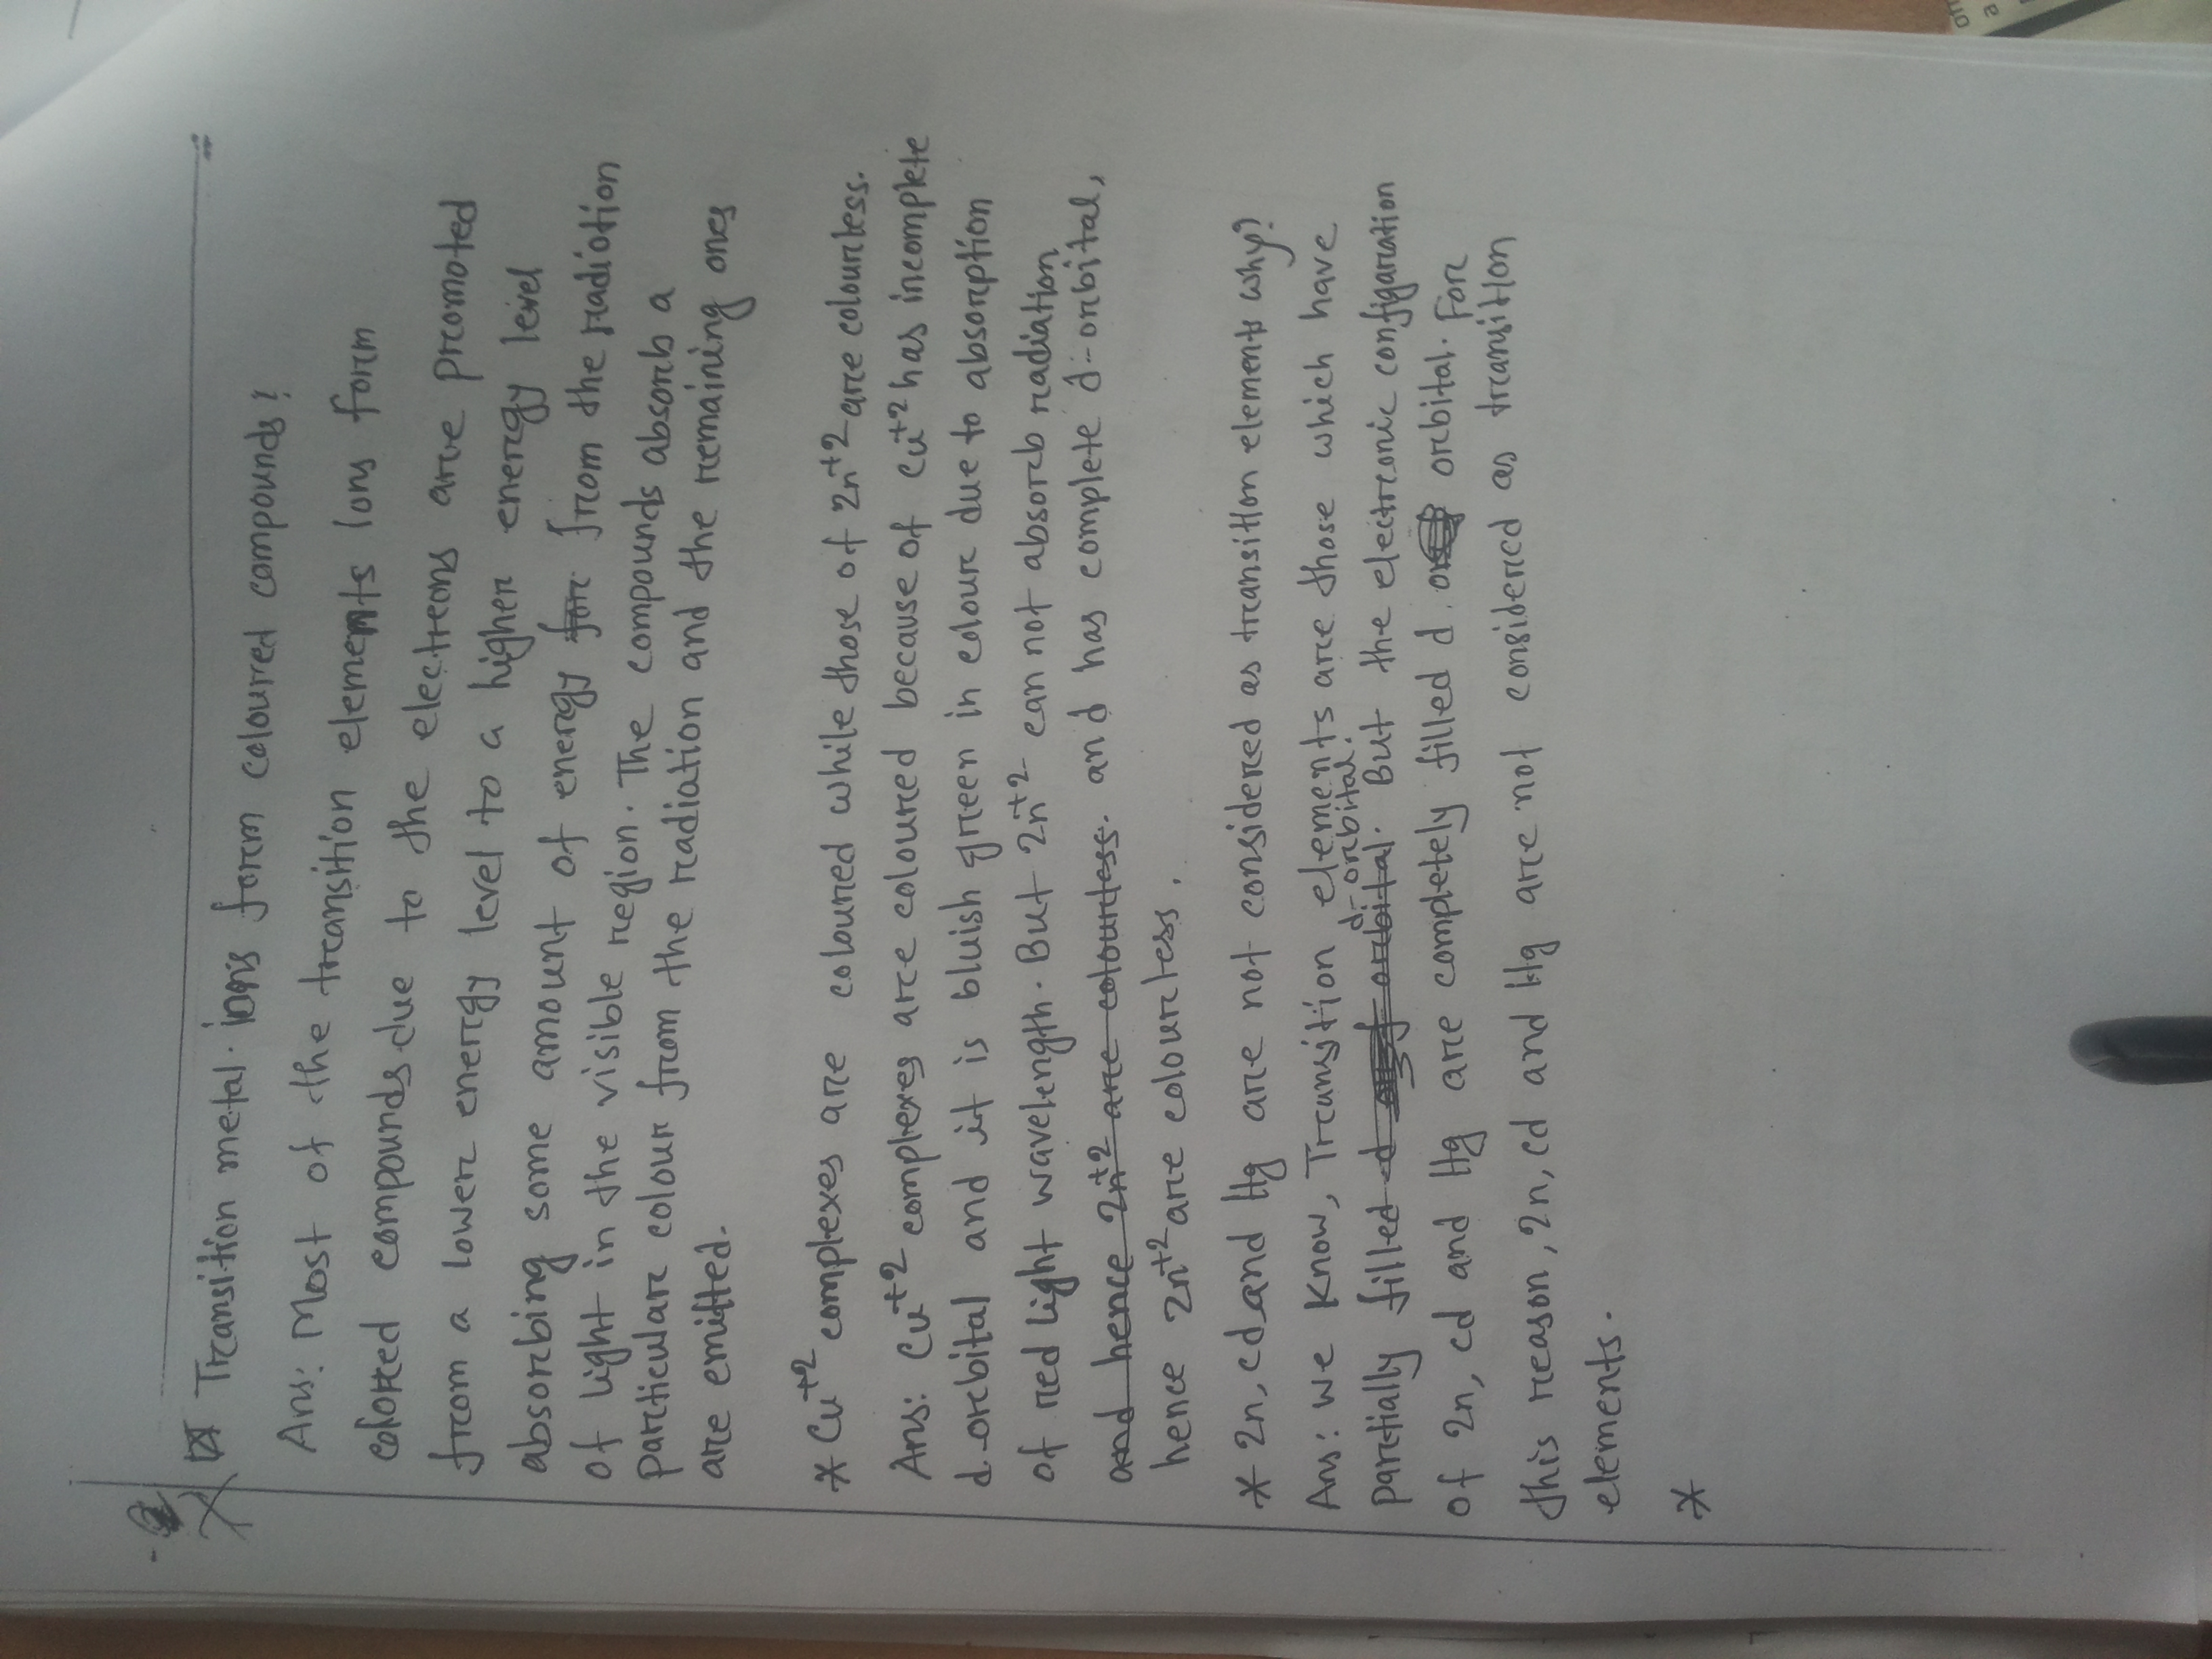 Transition metal ions form coloured compounds?
Ans: Most of the transition elements Ions form
colored compounds due to the electrons are promoted
from a lower energy level to a higher energy level
absorbing some amount of energy for from the radiation
of light in the visible region. The compounds absorb a
particular colour from the radiation and the remaining ones
are emitted.
* Cu+2 complexes are coloured while those of Zn+2 are colourless.
Ans: Cu+2 complexes are coloured because of Cu+2 has incomplete
d-orbital and it is bluish green in colour due to absorption
of red light wavelength. But Zn+2 can not absorb radiation
and hence Zn+2 are colourless. and has complete d-orbital,
hence Zn+2 are colourless.
* Zn, cd and Hg are not considered as transition elements why?
Ans: we know, Transition elements are those which have
d-orbital.
partially filled d orbital. But the electronic configuration
of Zn, cd and Hg are completely filled d orbital. For
this reason, Zn, cd and Hg are not considered as transition
elements.
*